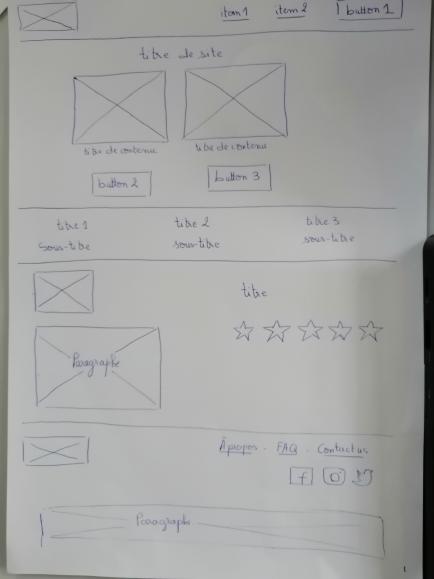 item 1 item 2 button 1
titre de site
titre de contenu titre de contenu
button 2 button 3
titre 1 titre 2 titre 3
sous-titre sous-titre sous-titre
titre
Paragraphe
À propos . FAQ . Contact us
f
Paragraphe
1